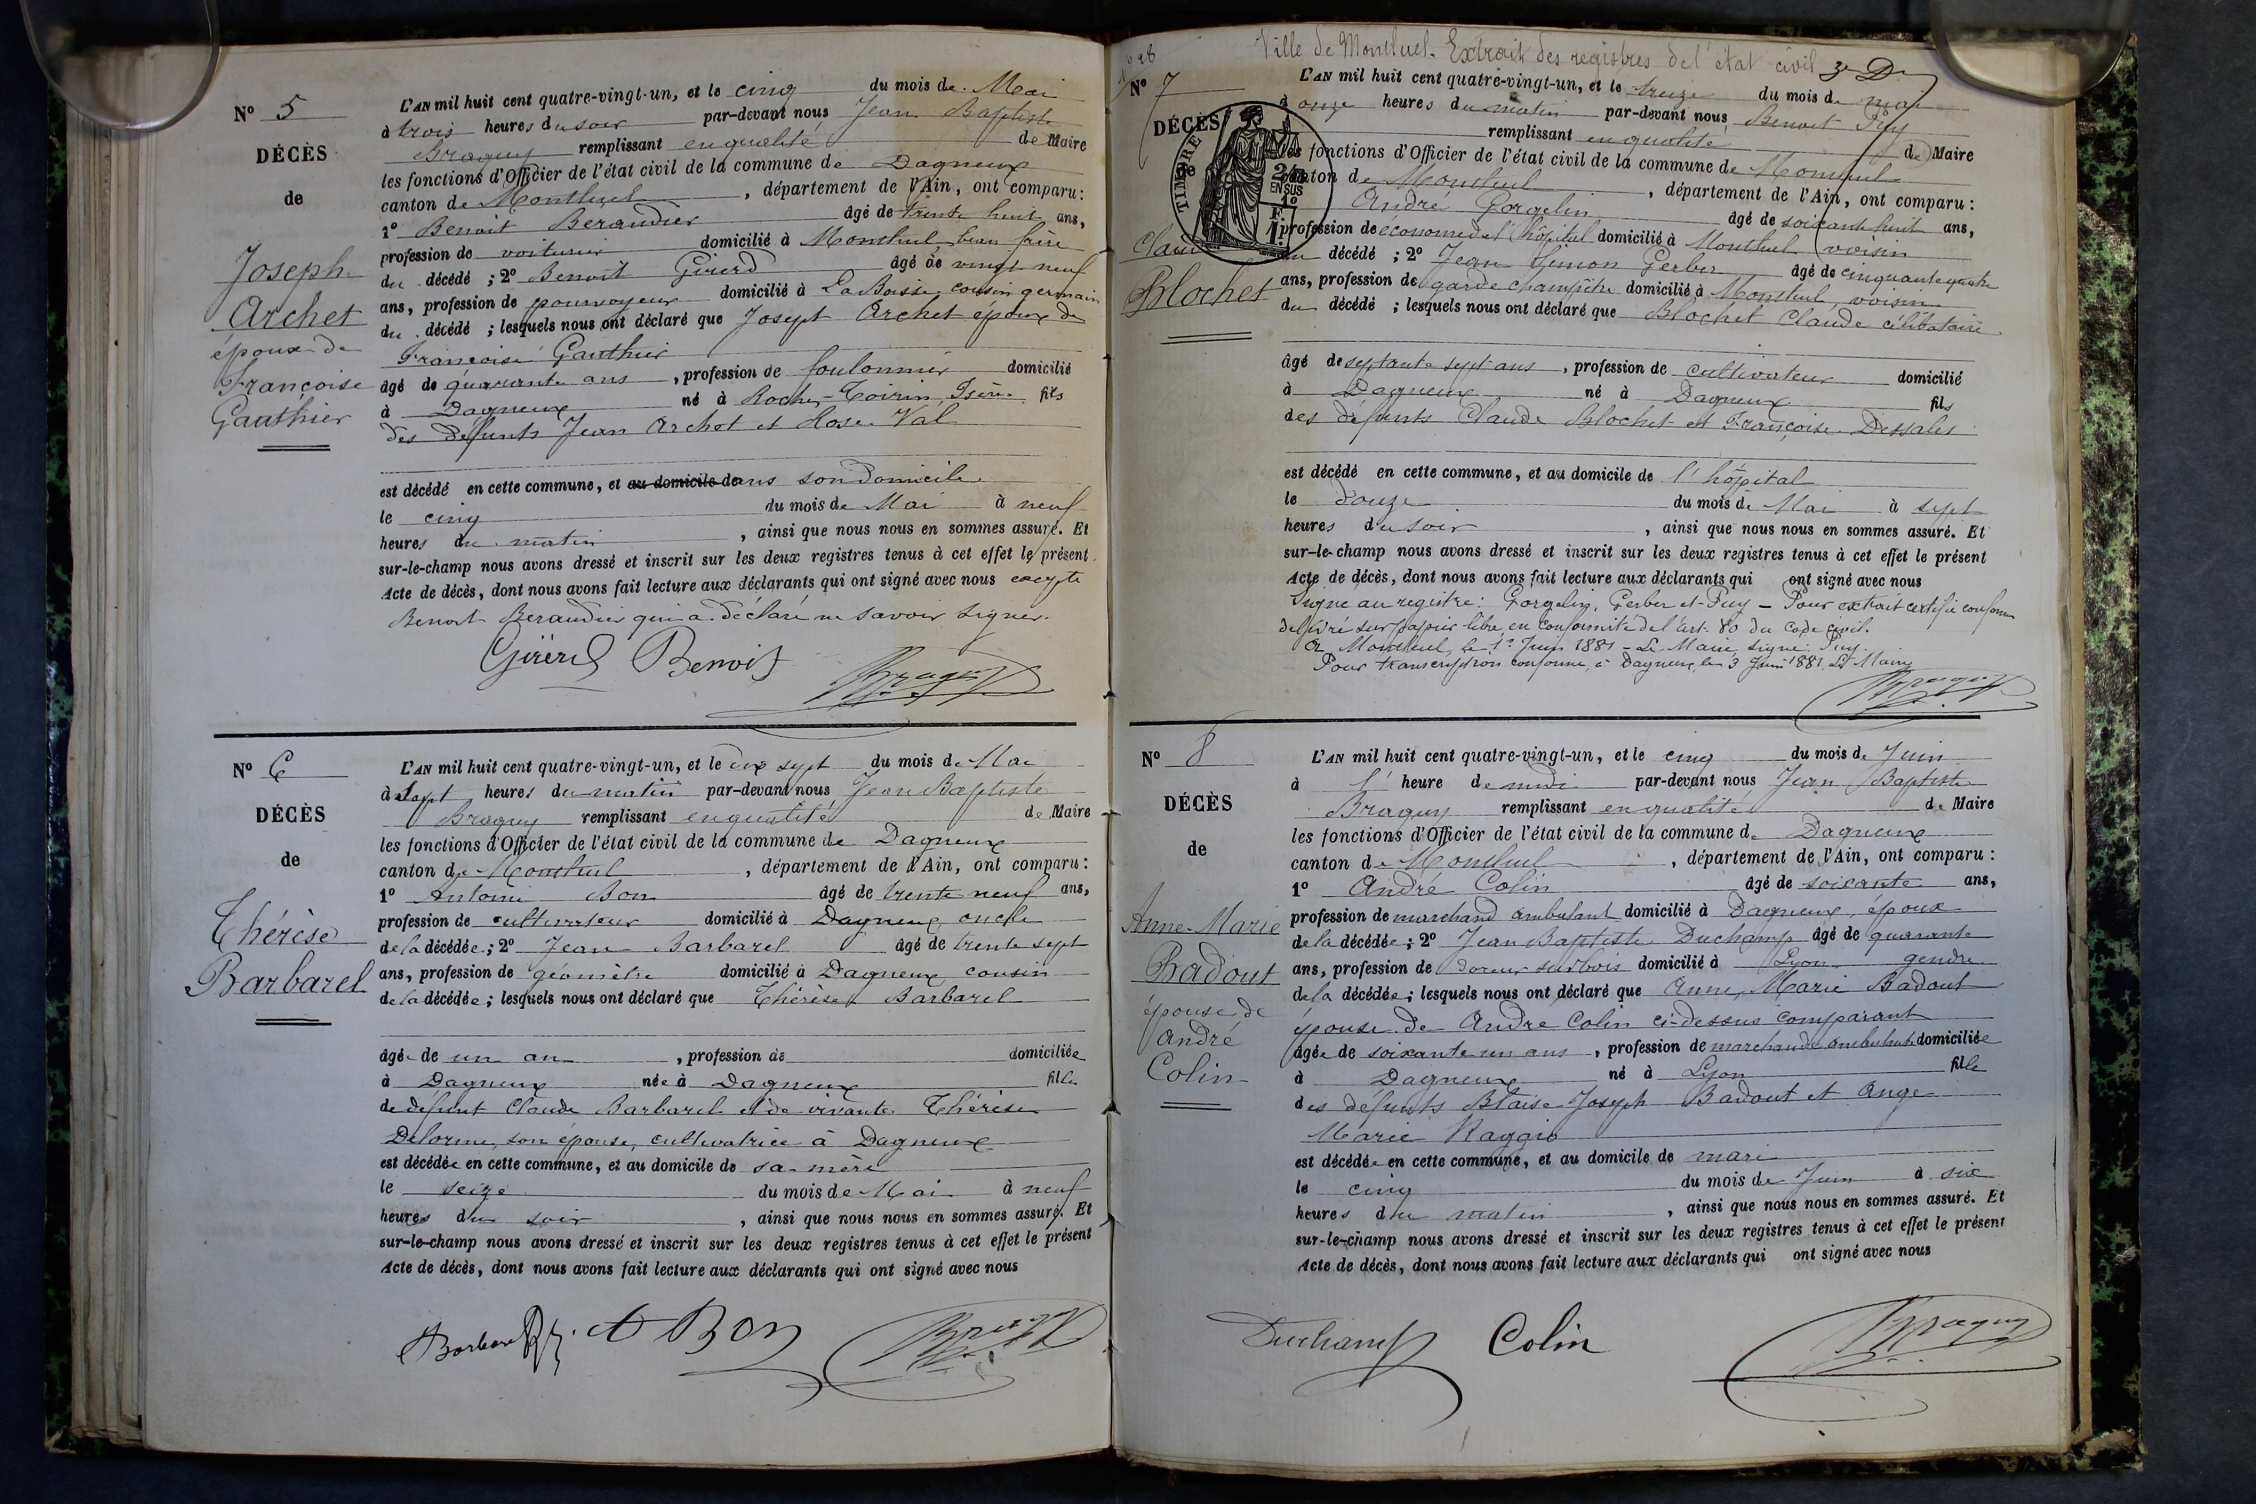 N° 5
DÉCÈS
de
Joseph
Archet
époux de
Françoise
Gauthier
L'AN mil huit cent quatre-vingt-un, et le cinq du mois de Mai
à trois heures du soir par-devant nous Jean Baptiste
Braguy remplissant en qualité de Maire
les fonctions d'Officier de l'état civil de la commune de Dagneux
canton de Montluel, département de l'Ain, ont comparu :
1° Benoit Beraudier âgé de trente huit ans,
profession de voiturier domicilié à Montluel beau frère
du décédé ; 2° Benoit Girerd âgé de vingt neuf
ans, profession de pourvoyeur domicilié à La Boisse cousin germain
du décédé ; lesquels nous ont déclaré que Joseph Archet époux de
Françoise Gauthier
âgé de quarante ans, profession de foulonnier domicilié
à Dagneux né à Roche-Toirin, Isère fils
des défunts Jean Archet et Rose Val
est décédé en cette commune, et au domicile dans son domicile
le cinq du mois de Mai à neuf
heures du matin, ainsi que nous nous en sommes assuré. Et
sur-le-champ nous avons dressé et inscrit sur les deux registres tenus à cet effet le présent
Acte de décès, dont nous avons fait lecture aux déclarants qui ont signé avec nous excepté
Benoit Beraudier qui a déclaré ne savoir signer.
Girerd Benoit Braguy
N° 6
DÉCÈS
de
Thérèse
Barbarel
L'AN mil huit cent quatre-vingt-un, et le dix sept du mois de Mai
à sept heures du matin par-devant nous Jean Baptiste
Braguy remplissant en qualité de Maire
les fonctions d'Officier de l'état civil de la commune de Dagneux
canton de Montluel, département de l'Ain, ont comparu :
1° Antoine Bon âgé de trente neuf ans,
profession de cultivateur domicilié à Dagneux, oncle
de la décédée ; 2° Jean Barbarel âgé de trente sept
ans, profession de géomètre domicilié à Dagneux cousin
de la décédée ; lesquels nous ont déclaré que Thérèse Barbarel
âgée de un an, profession de domiciliée
à Dagneux née à Dagneux fille
de défunt Claude Barbarel et de vivante Thérèse
Delorme, son épouse, cultivatrice à Dagneux
est décédée en cette commune, et au domicile de sa mère
le seize du mois de Mai à neuf
heures du soir, ainsi que nous nous en sommes assuré. Et
sur-le-champ nous avons dressé et inscrit sur les deux registres tenus à cet effet le présent
Acte de décès, dont nous avons fait lecture aux déclarants qui ont signé avec nous
Barbarel A Bon Braguy
N° 28
Ville de Montluel. Extrait des registres de l'état civil
N° 7
DÉCÈS
de
Claude
Blochet
TIMBRE
2/10
EN SUS
L'AN mil huit cent quatre-vingt-un, et le treize du mois de mai
à onze heures du matin par-devant nous Benoit Puy
remplissant en qualité de Maire
les fonctions d'Officier de l'état civil de la commune de Montluel
canton de Montluel, département de l'Ain, ont comparu :
1° André Gorgelin âgé de soixante huit ans,
profession de économe de l'hôpital domicilié à Montluel voisin
du décédé ; 2° Jean Simon Gerber âgé de cinquante quatre
ans, profession de garde champêtre domicilié à Montluel, voisin
du décédé ; lesquels nous ont déclaré que Blochet Claude célibataire
âgé de septante sept ans, profession de cultivateur domicilié
à Dagneux né à Dagneux fils
des défunts Claude Blochet et Françoise Dessales
est décédé en cette commune, et au domicile de l'hôpital
le douze du mois de Mai à sept
heures du soir, ainsi que nous nous en sommes assuré. Et
sur-le-champ nous avons dressé et inscrit sur les deux registres tenus à cet effet le présent
Acte de décès, dont nous avons fait lecture aux déclarants qui ont signé avec nous
Signé au registre : Gorgelin, Gerber et Puy – Pour extrait certifié conforme
délivré sur papier libre en conformité de l'art. 80 du Code civil.
A Montluel, le 1er Juin 1881 – Le Maire, signé : Puy.
Pour transcription conforme, à Dagneux, le 3 Juin 1881, Le Maire
Braguy
N° 8
DÉCÈS
de
Anne-Marie
Badout
épouse de
André
Colin
L'AN mil huit cent quatre-vingt-un, et le cinq du mois de Juin
à l' heure de midi par-devant nous Jean Baptiste
Braguy remplissant en qualité de Maire
les fonctions d'Officier de l'état civil de la commune de Dagneux
canton de Montluel, département de l'Ain, ont comparu :
1° André Colin âgé de soixante ans,
profession de marchand ambulant domicilié à Dagneux, époux
de la décédée ; 2° Jean Baptiste Duchamp âgé de quarante
ans, profession de doreur sur bois domicilié à Lyon gendre
de la décédée ; lesquels nous ont déclaré que Anne, Marie Badout
épouse de André Colin ci-dessus comparant
âgée de soixante un ans, profession de marchande ambulante domiciliée
à Dagneux né à Lyon fille
des défunts Blaise Joseph Badout et Ange
Marie Raggio
est décédée en cette commune, et au domicile de mari
le cinq du mois de Juin à six
heures du matin, ainsi que nous nous en sommes assuré. Et
sur-le-champ nous avons dressé et inscrit sur les deux registres tenus à cet effet le présent
Acte de décès, dont nous avons fait lecture aux déclarants qui ont signé avec nous
Duchamp Colin Braguy